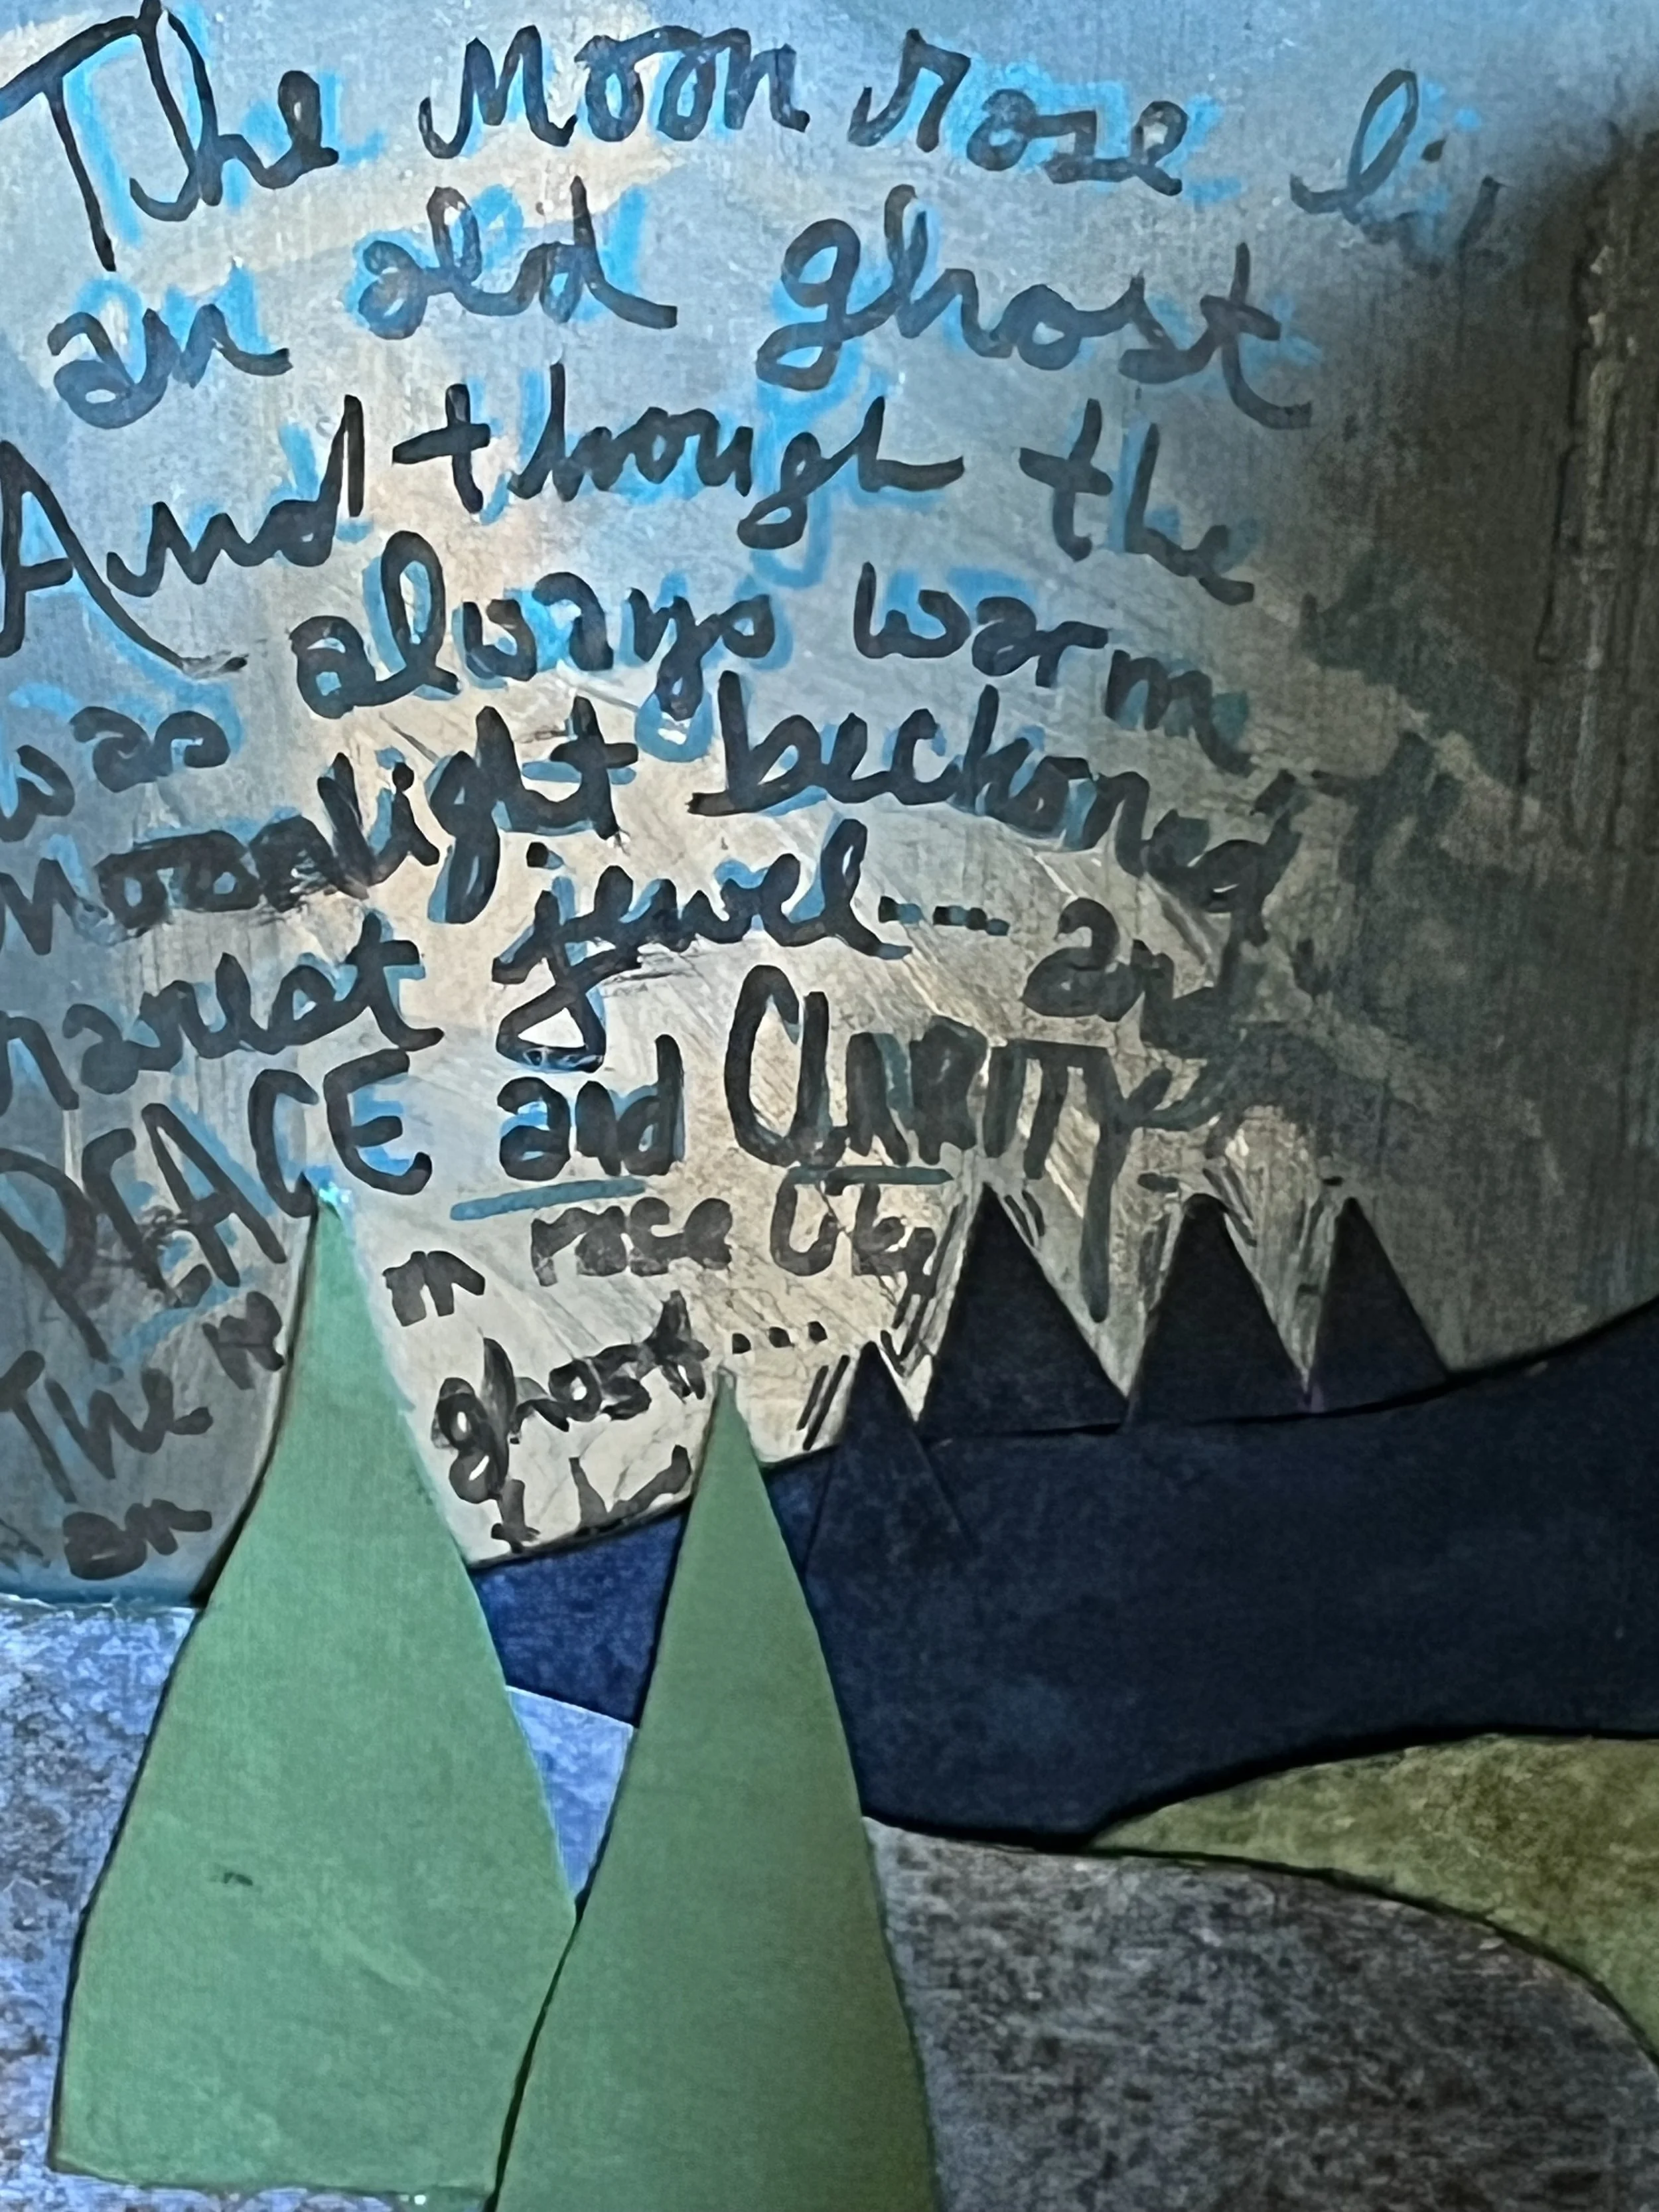 The moon rose li
an old ghost
And though the
was always warm
moonlight beckoned
narest jewel---- and
PEACE and ClARITY
The m rose like
an ghost....